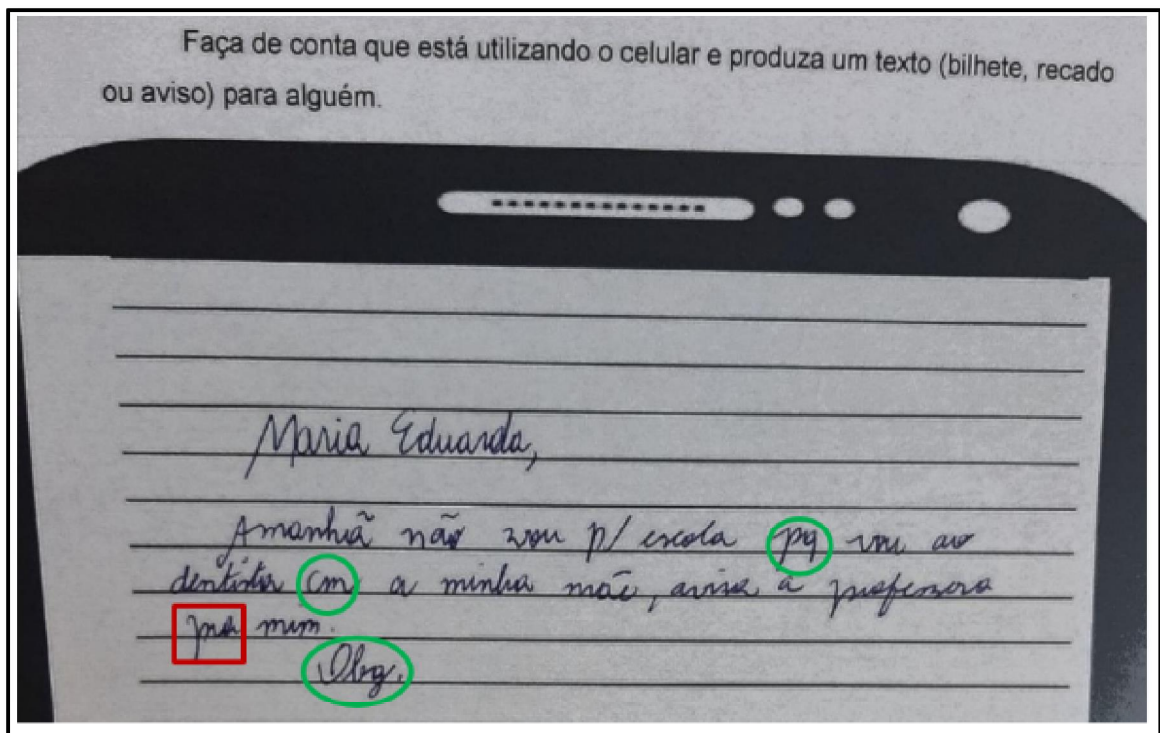 Faça de conta que está utilizando o celular e produza um texto (bilhete, recado
ou aviso) para alguém.
Maria Eduarda,
Amanhã não vou p/ escola pq vou ao
dentista cm a minha mãe, avisa a professora
pra mim.
Obg.